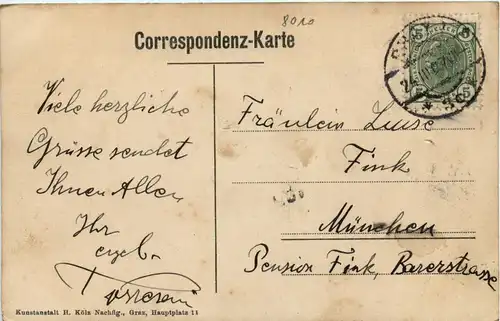 8010
Correspondenz-Karte
Viele herzliche
Grüsse sendet
Ihnen Allen
Ihr
ergeb.
Fräulein Luise
Fink
München
Pension Fink, Barerstrasse
Kunstanstalt H. Kölz Nachflg., Graz, Hauptplatz 11
5
5